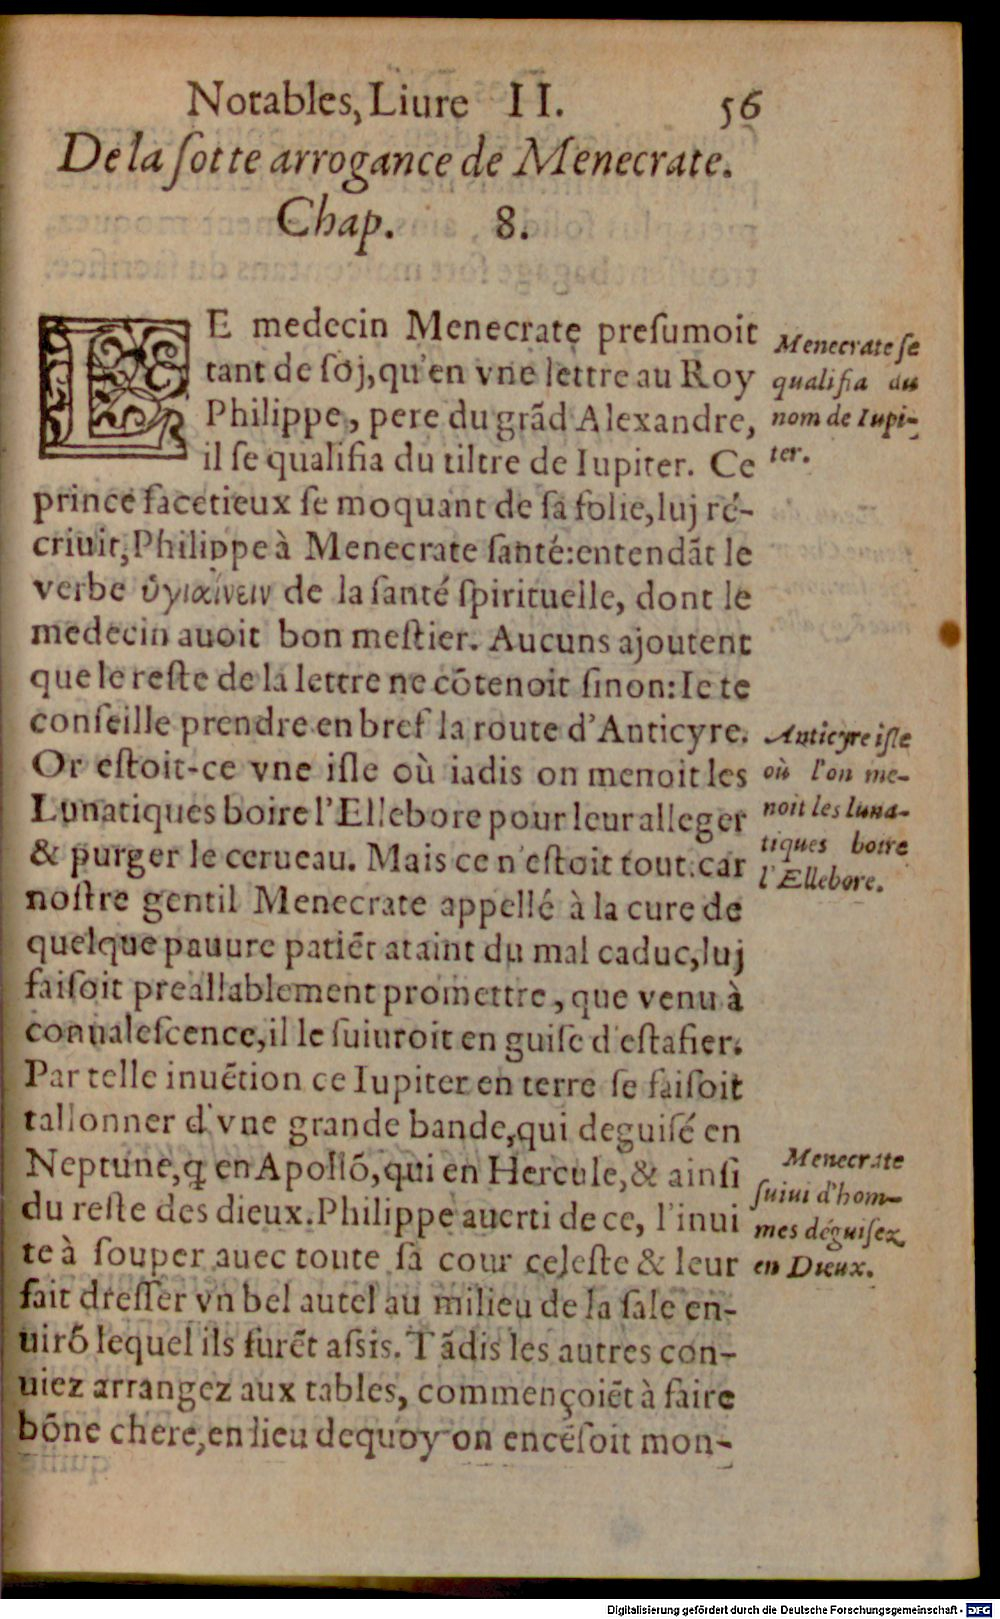 Notables, Liure II. 56
De la ſotte arrogance de Menecrate.
Chap. 8.
LE medecin Menecrate preſumoit
tant de ſoj, qu'en vne lettre au Roy
Philippe, pere du grãd Alexandre,
il ſe qualifia du tiltre de Iupiter. Ce
prince facetieux ſe moquant de ſa folie, luj ré-
criuit, Philippe à Menecrate ſanté: entendãt le
verbe ὑγιαίνειν de la ſanté ſpirituelle, dont le
medecin auoit bon meſtier. Aucuns ajoutent
que le reſte de la lettre ne cõtenoit ſinon: Ie te
conſeille prendre en bref la route d'Anticyre.
Or eſtoit-ce vne iſle où iadis on menoit les
Lunatiques boire l'Ellebore pour leur alleger
& purger le cerueau. Mais ce n'eſtoit tout. car
noſtre gentil Menecrate appellé à la cure de
quelque pauure patiẽt ataint du mal caduc, luj
faiſoit preallablement promettre, que venu à
conualeſcence, il le ſuiuroit en guiſe d'eſtafier.
Par telle inuẽtion ce Iupiter en terre ſe faiſoit
tallonner d'vne grande bande, qui deguiſé en
Neptune, q en Apollõ, qui en Hercule, & ainſi
du reſte des dieux. Philippe auerti de ce, l'inui
te à ſouper auec toute ſa cour celeſte & leur
fait dreſſer vn bel autel au milieu de la ſale en-
uirõ lequel ils furẽt aſsis. Tãdis les autres con-
uiez arrangez aux tables, commençoiẽt à faire
bõne chere, en lieu dequoy on encẽſoit mon-
Menecrate ſe
qualifia du
nom de Iupi-
ter.
Anticyre iſle
où l'on me-
noit les luna-
tiques boire
l'Ellebore.
Menecrate
ſuiui d'hom-
mes déguiſez
en Dieux.
Digitalisierung gefördert durch die Deutsche Forschungsgemeinschaft - DFG